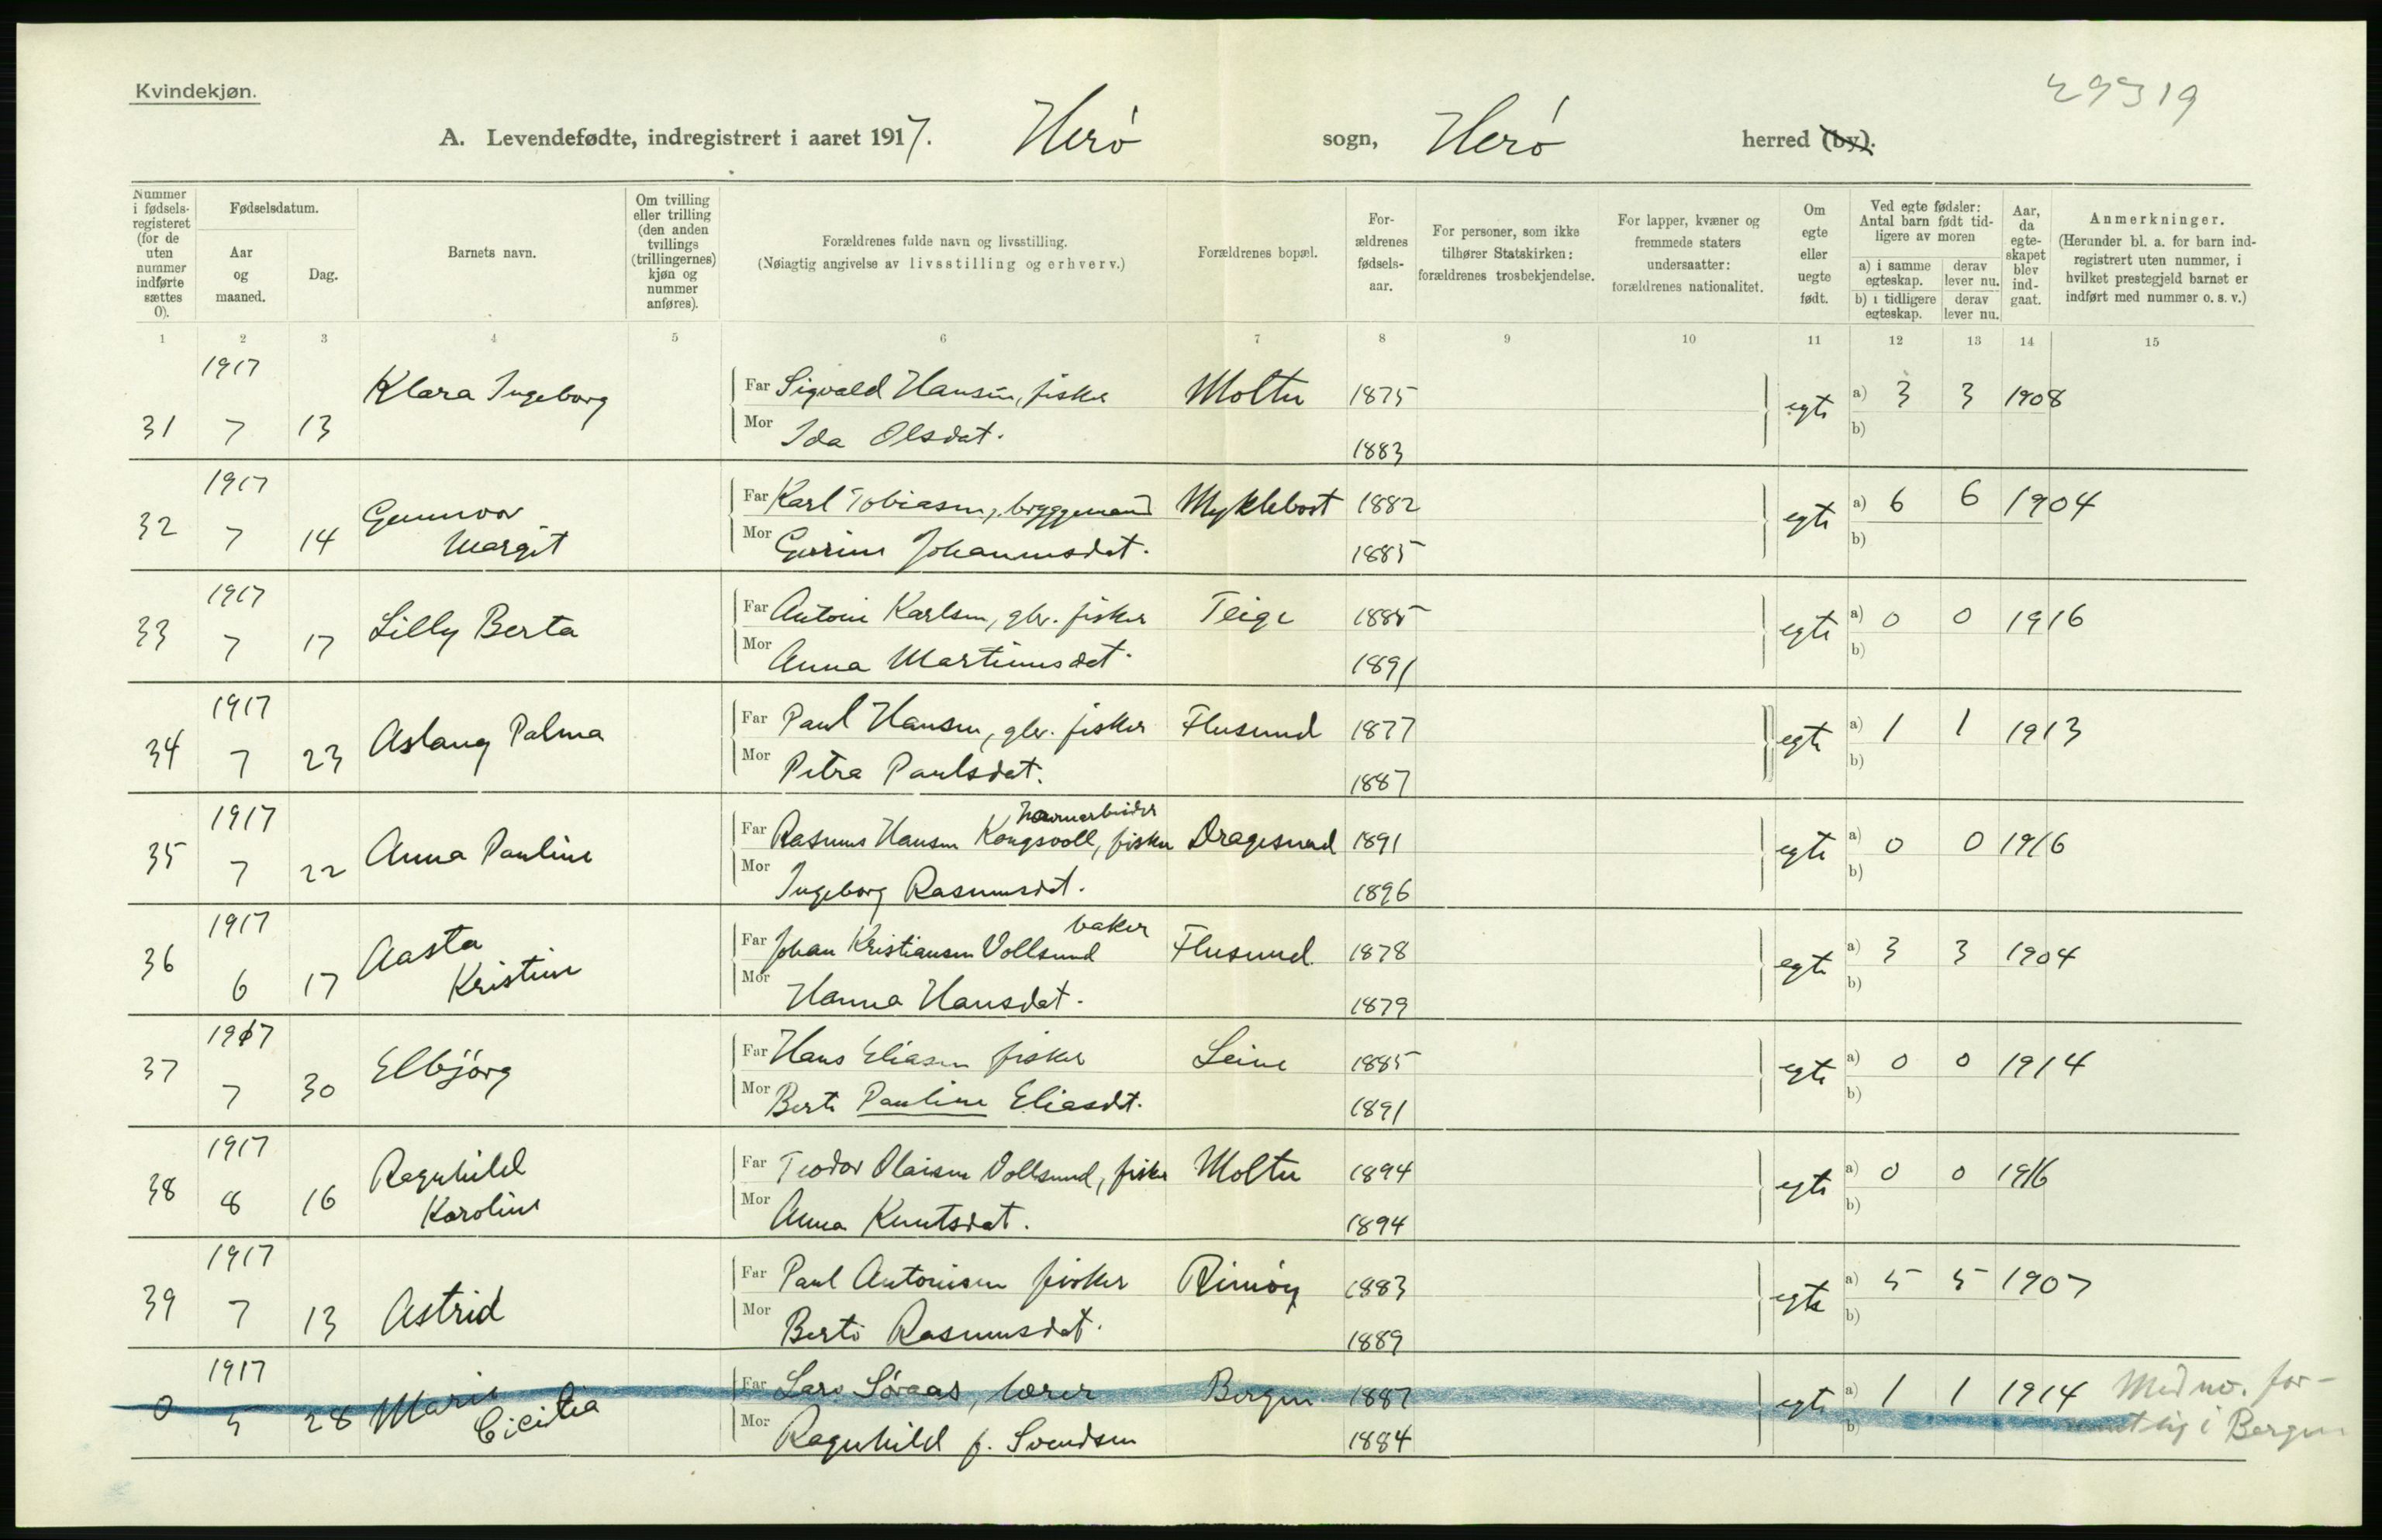 Kvindekjøn.
29319
A. Levendefødte, indregistrert i aaret 1917. Herø sogn, Herø herred (by).
Nummer i fødselsregisteret (for de uten nummer indførte sættes 0).
Fødselsdatum.
Aar og maaned.
Dag.
Barnets navn.
Om tvilling eller trilling (den anden tvillings (trillingernes) kjøn og nummer anføres).
Forældrenes fulde navn og livsstilling.
(Nøiagtig angivelse av livsstilling og erhverv.)
Forældrenes bopæl.
Forældrenes fødselsaar.
For personer, som ikke tilhører Statskirken: forældrenes trosbekjendelse.
For lapper, kvæner og fremmede staters undersaatter: forældrenes nationalitet.
Om egte eller uegte født.
Ved egte fødsler: Antal barn født tidligere av moren
a) i samme egteskap. derav lever nu.
b) i tidligere egteskap. derav lever nu.
Aar, da egteskapet blev indgaat.
Anmerkninger.
(Herunder bl. a. for barn indregistrert uten nummer, i hvilket prestegjeld barnet er indført med nummer o. s. v.)
1 2 3 4 5 6 7 8 9 10 11 12 13 14 15
1917
31 7 13 Klara Ingeborg Far Sigvald Hansen, fisker Moltu 1875 egte a) 3 3 1908
Mor Ida Olsdat. 1883 b)
1917
32 7 14 Gunnvor Margit Far Karl Tobiasen, bryggemand Myklebost 1882 egte a) 6 6 1904
Mor Gurine Johannesdat. 1885 b)
1917
33 7 17 Lilly Berta Far Antoni Karlsen, gbr. fisker Teige 1885 egte a) 0 0 1916
Mor Anna Martinusdat. 1891 b)
1917
34 7 23 Aslaug Palma Far Paul Hansen, gbr. fisker Flusund 1877 egte a) 1 1 1913
Mor Petra Paulsdat. 1887 b)
1917
havnearbeider
35 7 22 Anna Pauline Far Rasmus Hansen Kongsvoll, fisker Dragesund 1891 egte a) 0 0 1916
Mor Ingeborg Rasmusdat. 1896 b)
1917
baker
36 6 17 Aasta Kristine Far Johan Kristiansen Vollsund Flusund 1878 egte a) 3 3 1904
Mor Hanna Hansdat. 1879 b)
1917
37 7 30 Elbjörg Far Hans Eliasen fisker Leine 1885 egte a) 0 0 1914
Mor Berte Pauline Eliasdt. 1891 b)
1917
38 8 16 Ragnhild Karoline Far Teodor Olaisen Vollsund, fisker Moltu 1894 egte a) 0 0 1916
Mor Anna Knutsdat. 1894 b)
1917
39 7 13 Astrid Far Paul Antonisen fisker Rimöy 1883 egte a) 5 5 1907
Mor Berte Rasmusdat. 1889 b)
1917
0 5 28 Marie Cicilia Far Lars Søraas, lærer Bergen 1887 egte a) 1 1 1914 Med no. for-
Mor Ragnhild f. Svendsen 1884 b) mentlig i Bergen